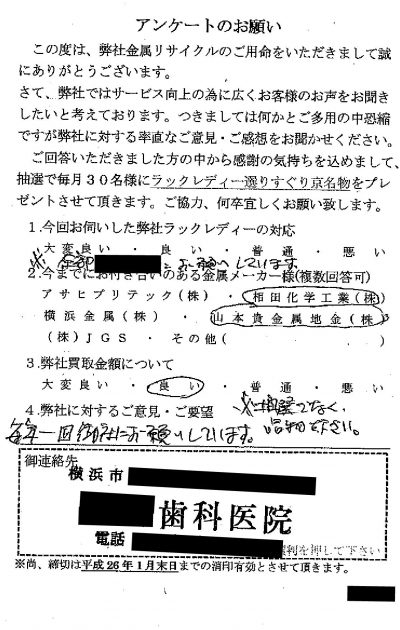 アンケートのお願い
この度は、弊社金属リサイクルのご用命をいただきまして誠
にありがとうございます。
さて、弊社ではサービス向上の為に広くお客様のお声をお聞き
したいと考えております。つきましては何かとご多用の中恐縮
ですが弊社に対する率直なご意見・ご感想をお聞かせください。
ご回答いただきました方の中から感謝の気持ちを込めまして、
抽選で毎月30名様にラックレディー選りすぐり京名物をプレ
ゼントさせて頂きます。ご協力、何卒宜しくお願い致します。
1.今回お伺いした弊社ラックレディーの対応
大変良い ・ 良い ・ 普通 ・ 悪い
※ 全部 にお願いしています。
2.今までにお付き合いのある金属メーカー様(複数回答可)
アサヒプリテック(株) ・ 相田化学工業(株)
横浜金属(株) ・ 山本貴金属地金(株)
(株)JGS ・ その他( )
3.弊社買取金額について
大変良い ・ 良い ・ 普通 ・ 悪い
4.弊社に対するご意見・ご要望
※抽選でなく、
品物下さい。
毎年一回御社にお願いしています。
御連絡先
横浜市
歯科医院
電話
を押して下さい
※尚、締切は平成26年1月末日までの消印有効とさせて頂きます。